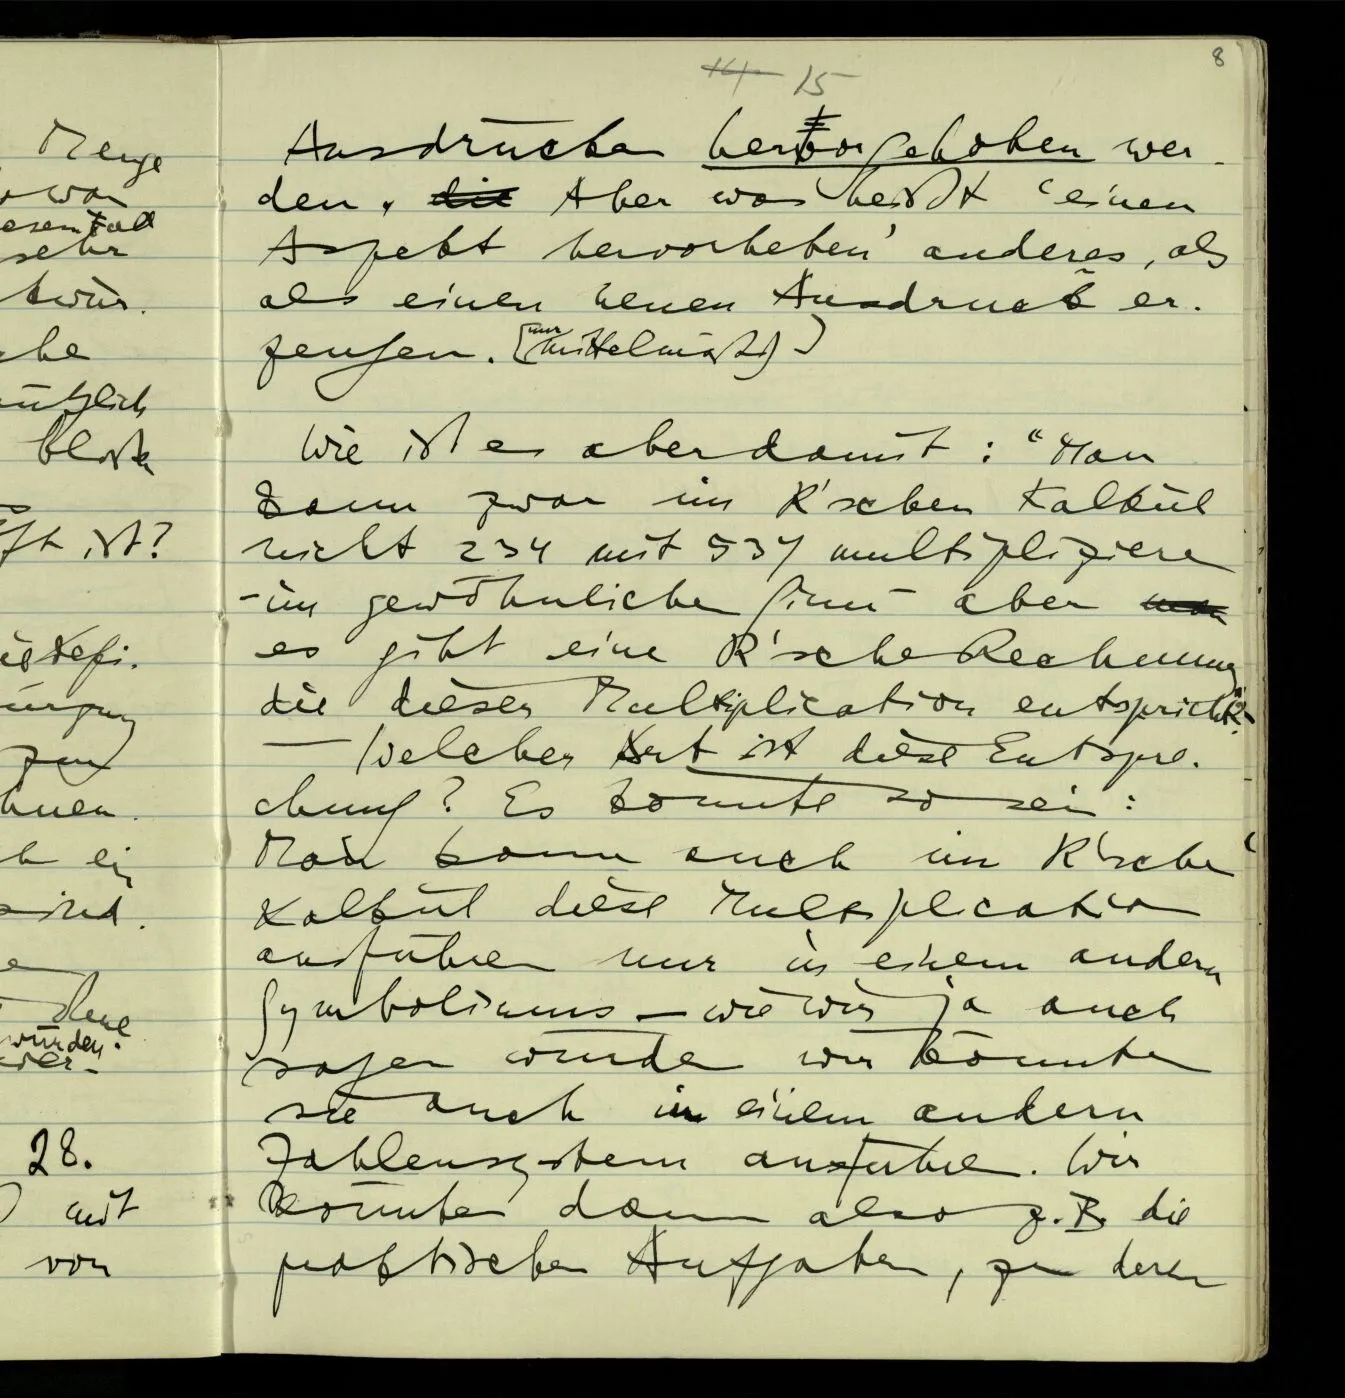 8
14 15
Menge
Ausdrucks hervorgehoben wer-
den. die Aber was heißt 'einen
Aspekt hervorheben' anderes, als
als einen neuen Ausdruck er-
zeugen. [nur mittelmäßig]
Wie ist es aber damit: "Man
kann zwar im R'schen Kalkül
nicht 234 mit 537 multiplizieren
-im gewöhnlichen Sinn- aber man
es gibt eine R'sche Rechnung
die dieser Multiplication entspricht"?
— Welcher Art ist diese Entspre-
chung? Es könnte so sein:
Man kann auch im R'schen
Kalkül diese Multiplication
ausführen nur in einem andern
Symbolismus – wie wir ja auch
sagen würden wir könnten
sie auch in einem andern
Zahlensystem ausführen. Wir
könnten dann also z.B. die
praktischen Aufgaben, zu deren
sehr
nützlich
bloße
ist?
ein
sind.
würden.
28.
mit
von